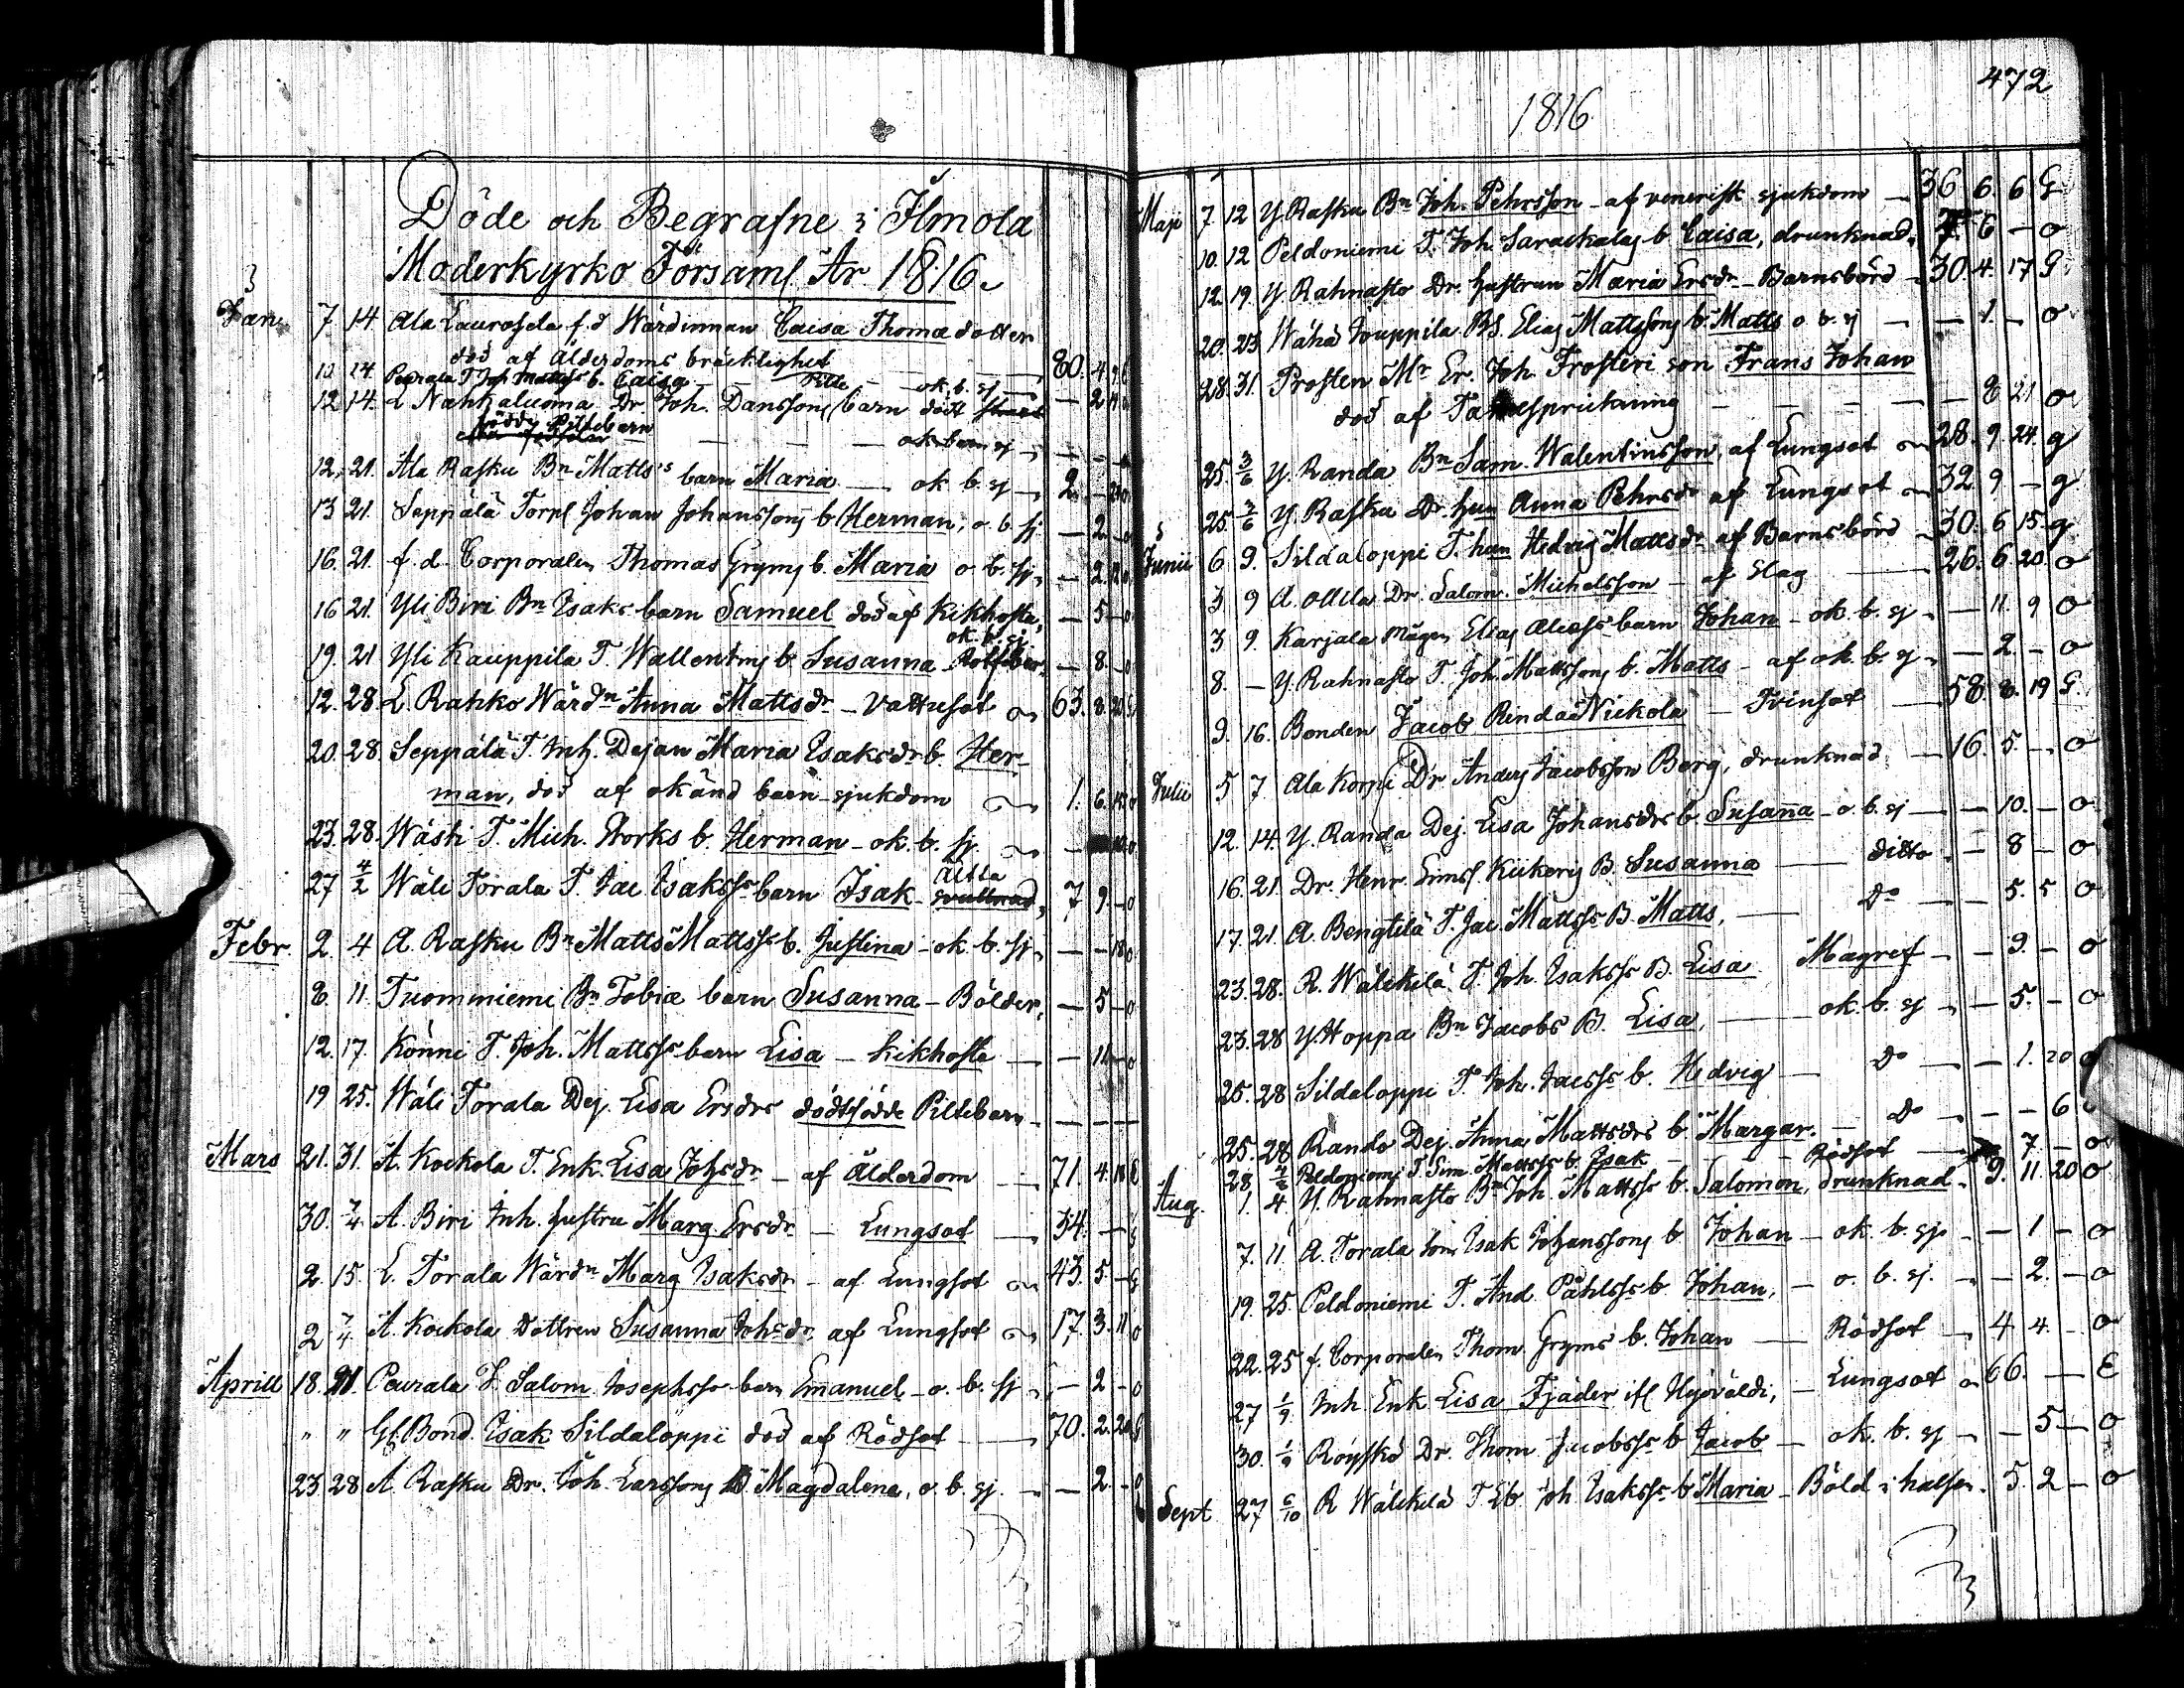 Döde och Begrafne i Ilmola
Moderkyrko Församl År 1816.
Jan. 7 14 Ala Laurosela f.d Wärdinnan Caisa Thomædotter
död af Ålderdoms bräcklighet — 80. 4
10. 14. Peurala T Joh Mattss b. Caisa — ok. b. sj — 2
12 14. L Nahkaluoma Dr. Joh. Danssons barn dödt
född Piltebarn
12. 21. Ala Rasku Bn Matts's barn Maria — ok b. sj — 2.
13 21. Seppälä Torp Johan Johanssons b Herman, o. b. sj. — 2 — o
16. 21. f. d. Corporalen Thomas Gryms b. Maria o. b. sj. — 2
16 21. Yli Biri Bn Isaks barn Samuel död af Kikhosta, — 5 — o
ok. b. sj
19. 21 Yli Kauppila T. Wallentins b. Susanna — 8. — o
12. 28. L. Rahko Wärdn Anna Mattsdr — Vattusot 63. 8. 20
20. 28. Seppälä T. Inh. Dejan Maria Isaksdr b. Her-
man, död af okänd barn-sjukdom 1. 6.
23. 28. Wäshi T. Mich. Storks b. Herman — ok. b. sj.
27 4/2 Wäli Torala T. Jac Isakss barn Isak 7 9. — o
Febr. 2. 4 A. Rasku Bn Matts Mattss b. Justina — ok. b. sj. — — 18 o
8. 11. Tuominiemi Bn Tobiæ barn Susanna — Bölder, — 5 — o
12. 17. Könni T. Joh. Mattss barn Lisa — Kikhosta —
19 25. Wäli Torala Dej. Lisa Ersdrs dödtfödde Piltebarn —
Mars 21. 31. A. Kockola T. Enk. Lisa Johsdr — af Ålderdom — 71. 4. 18
30. 7/4 A. Biri Inh. Hustru Marg. Ersdr — Lungsot — 54.
2. 15. L. Torala Wärdn Marg Isaksdr — af Lungsot 43. 5. —
2 7/4 A. Kockola Dottren Susanna Johsdr af Lungsot 17. 3. 11 o
Aprill 18. 21. Peurala T. Salom. Josephss barn Emanuel — o. b. sj — 2 — o
" " Gf. Bond. Isak Sildaloppi död af Rödsot — 70. 2. 20
23 28 A. Rasku Dr. Joh. Larssons B Magdalena, o. b. sj. — 2 — o
472
1816
Maji 7 12 Y Rasku Bn Joh. Pehrsson — af venerisk sjukdom — 36 6. 6 G
10. 12 Peldoniemi T. Joh b. Caisa, drunknad. 6 — o
12. 19. Y. Rahnasto Dr. hustrun Maria Ersdr — Barnsbörd — 30. 4. 17 G.
20. 23 Wähä Jouppila BS. Elias Mattssons b. Matts o. b. sj — — 1. — o
28. 31. Prosten Mr Er. Joh. Frosteri son Frans Johan
död af — — 8 21 o
25. 3/6 Y. Randa Bn Sam. Walentinsson, af Lungsot 28. 9. 24. g
25. Y. Rasku Dr. hun Anna Pehrsdr af Lungsot 32. 9 — g
Junii 6 9. Sildaloppi T. hun Hedvig Mattsdr af Barnsbörd 30. 6 15. g
3 9 A. Ollila Dr. Salom. Michelsson — af Slag — 26. 6 20. o
3 9. Karjala Mågen Elias barn Johan — ok. b. sj. — 11. 9 o
8. — Y. Rahnasto T. Joh. Mattssons b. Matts — af ok. b. sj — 2. — o
9. 16. Bonden Jacob Rinda Nickola — Tvinsot 58. 8. 19 G.
Julii 5 7 Ala Korpi Dr Anders Jacobsson Berg, drunknad. — 16. 5. — o
12. 14. Y. Randa Dej. Lisa Johansdrs b. Susanna — o. b. sj — — 10. — o
16. 21. Dr. Henr. Sims. B. Susanna — ditto — 8 — o
17. 21. A. Bengtilä T. Jac. Mattss B. Matts, — Do — 5. 5 o
23. 28. R. Wälikilä T. Joh Isakss B Lisa Magref — — 9. — o
23. 28 Y. Hoppa Bn Jacobs B. Lisa, — ok. b. sj — 5. — o
25. 28 Sildaloppi T. Joh. Jacss b. Hedvig — Do — — 1. 20
25. 28 Rando Dej. Anna Mattsdrs b. Margar. — Do — — 6
28. Peldoniemi T Sim. Mattss b. Isak — Rödsot — 7. — o
Aug. 1. 4 Y. Rahnasto Bn Joh. Mattss b. Salomon, drunknad. 9. 11. 20 o
7. 11 A. Torala Isak Johanssons b Johan — ok. b. sj. — 1 — o
19. 25. Peldoniemi T. And. Påhlss b. Johan, — o. b. sj. — 2. — o
22. 25 f. Corporalen Thom. Gryms b. Johan — Rödsot — 4 4. — o
27 1/9 Inh Enk Lisa Fjäder — Lungsot 66. — E
30. 1/9 Röyskö Dr. Thom Jacobss b Jacob — ok. b. sj — 5 — o
Sept 27 6/10 R Wälikilä T Eb. Joh Isakss b Maria — Böld i halsen. 5. 2 — o